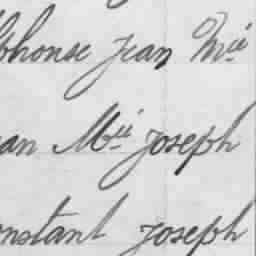 lphonse Jean Mie
an Mie Joseph
onstant Joseph